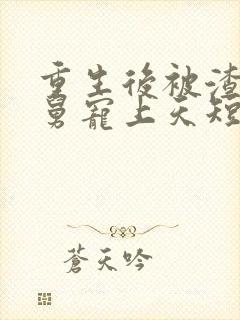 重生後被渣
舅寵上天短
蒼天吟